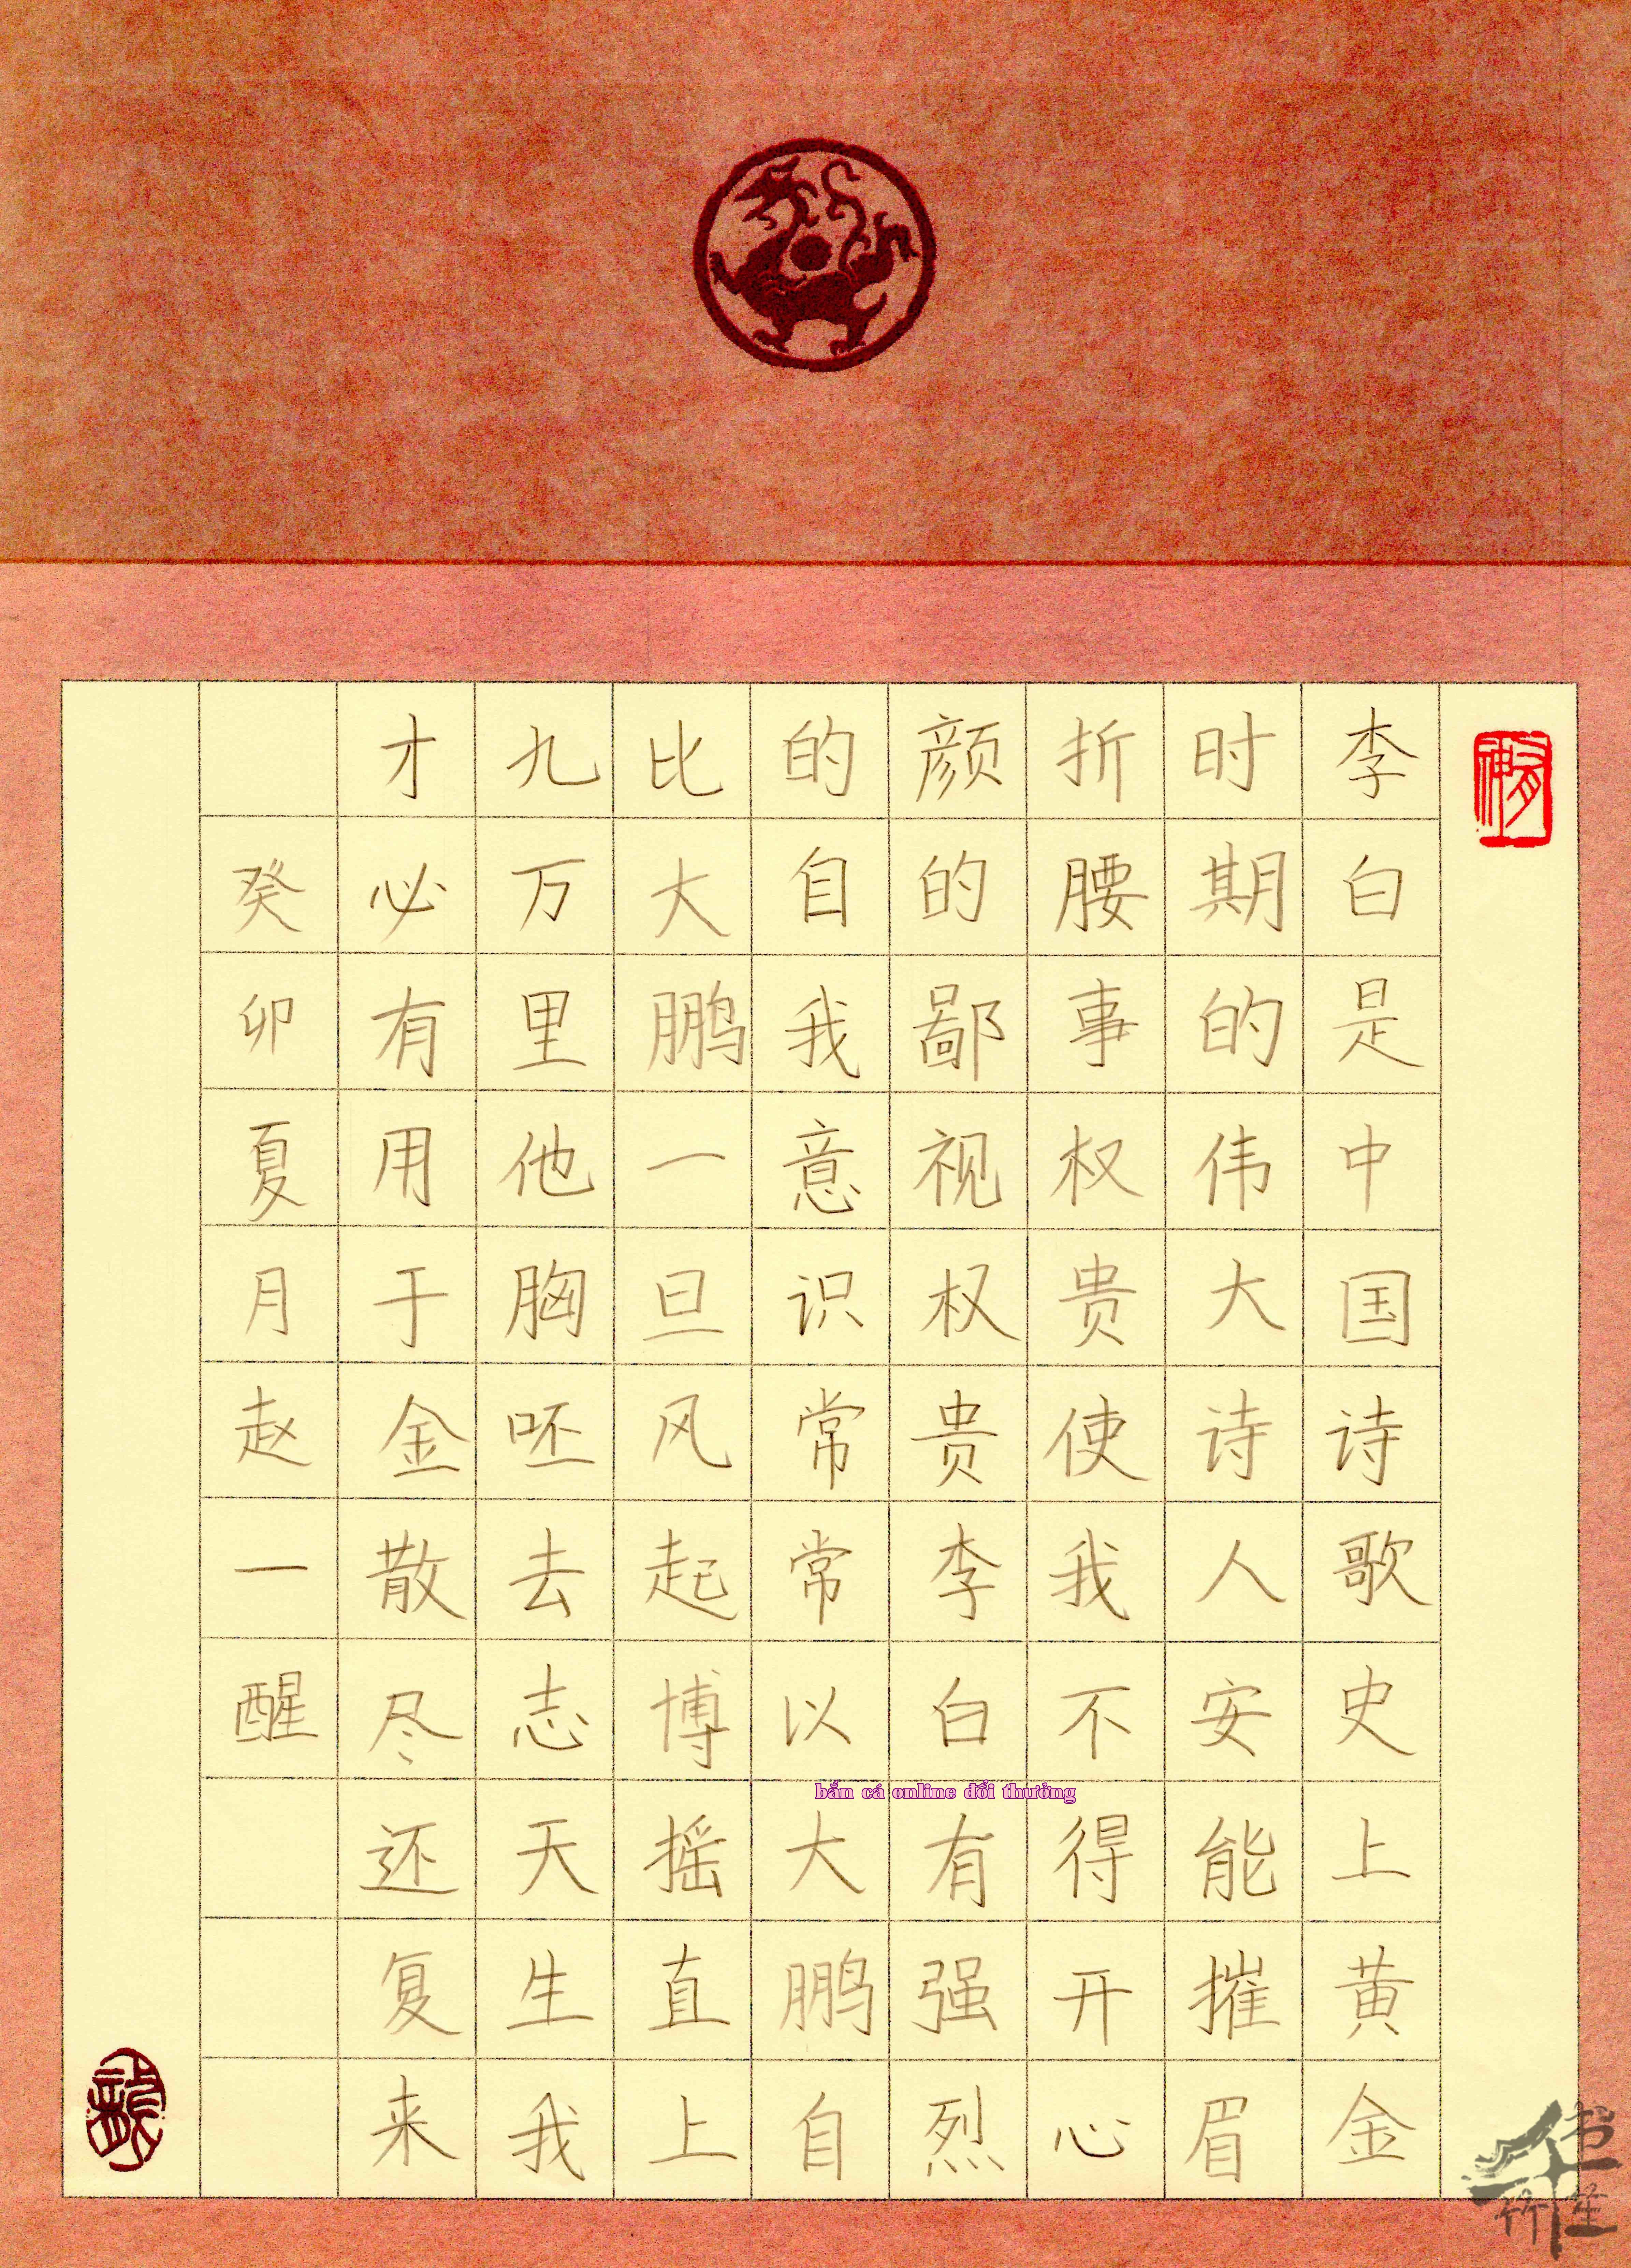 李白是中国诗歌史上黄金
时期的伟大诗人安能摧眉
折腰事权贵使我不得开心
颜的鄙视权贵李白有强烈
的自我意识常常以大鹏自
比大鹏一旦风起博摇直上
九万里他胸呸去志天生我
才必有用千金散尽还复来
癸卯夏月赵一醒
bắn cá online đổi thưởng